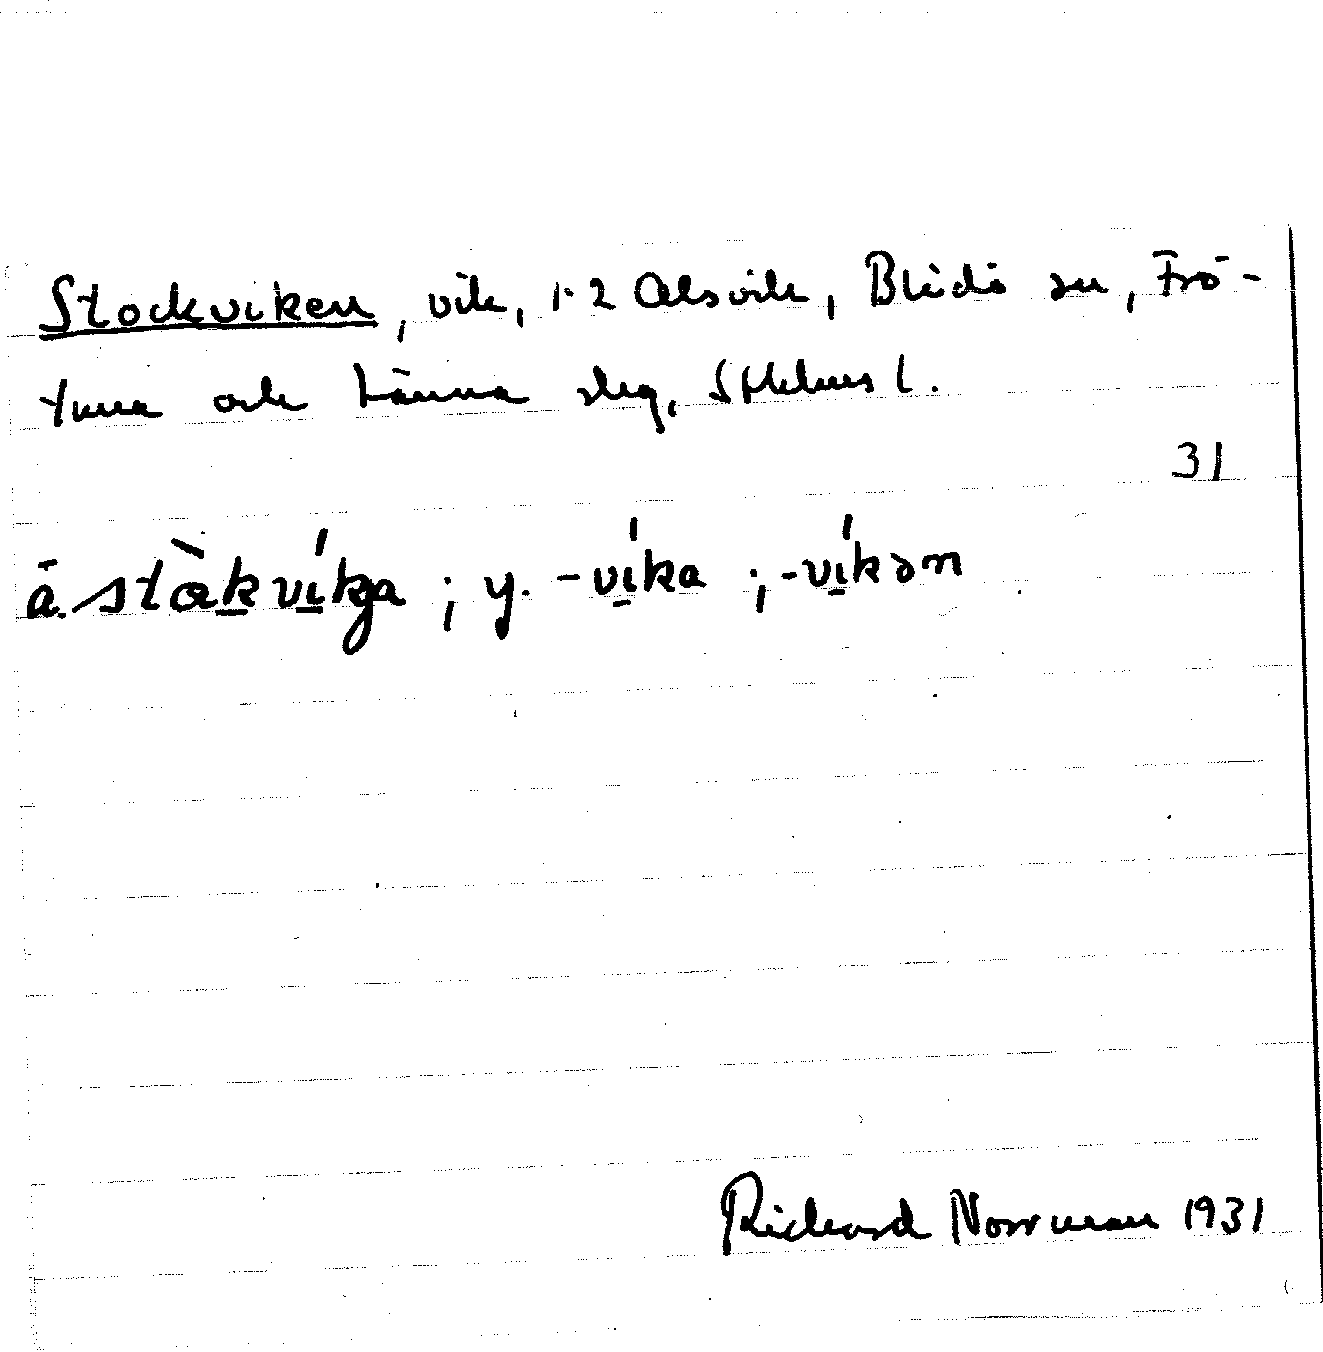 Stockviken, vik, 1·2 Alsvik, Blidö sn, Frö-
tuna och Länna slg, Sthlms l.
31
ä. stàkvíka ; y. -víka ; -víkən
Richard Norrman 1931